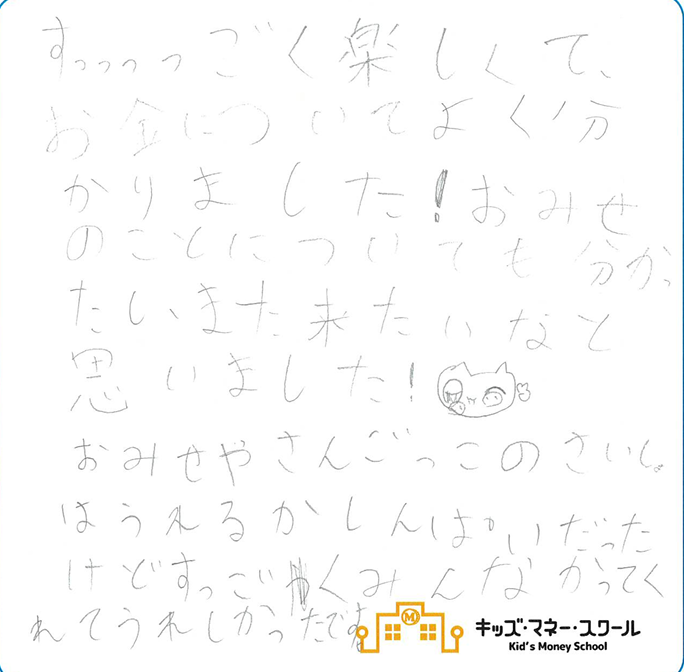 すっっっっごく楽しくて、
お金についてよく分
かりました!おみせ
のことについても分かっ
たしまた来たいなと
思いました!
おみせやさんごっこのさいしょ
はうれるかしんぱいだった
けどすっごくみんなかってく
れてうれしかったです
キッズ・マネー・スクール
Kid's Money School